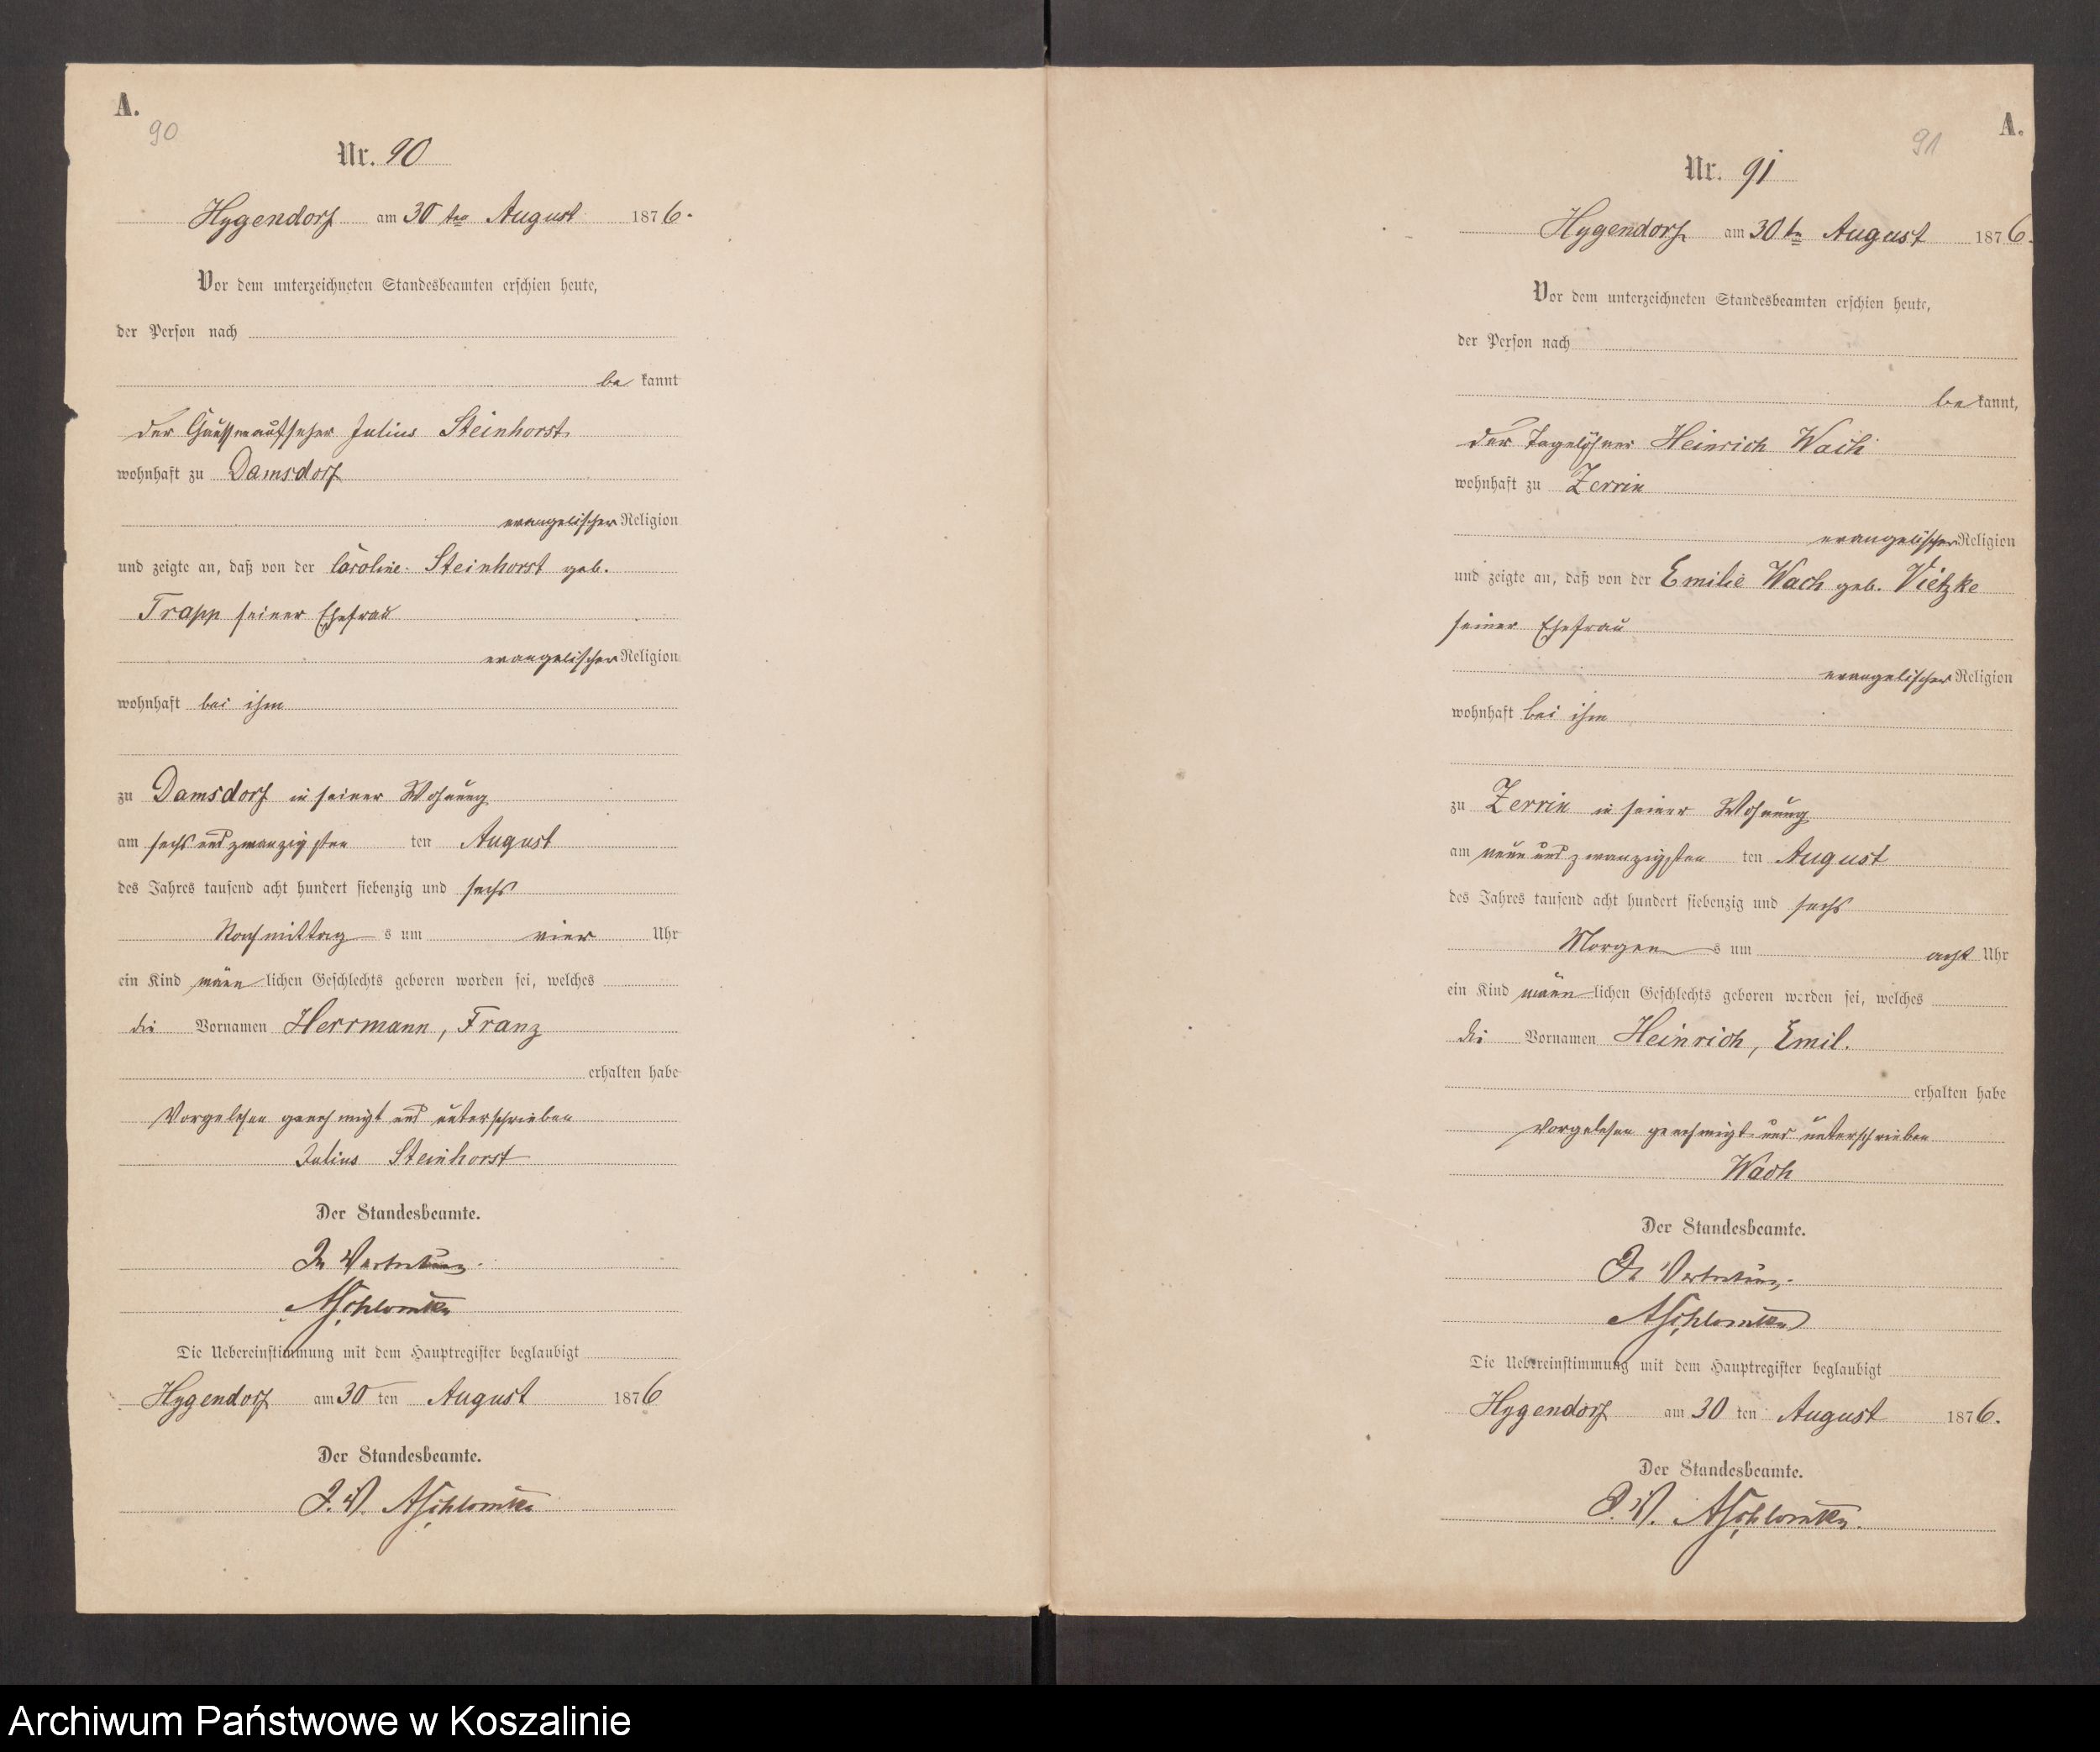 A.
90
Nr. 90
Hygendorf am 30 ten August 1876.
Vor dem unterzeichneten Standesbeamten erschien heute,
der Person nach
be kannt
der Chausseeaufseher Julius Steinhorst
wohnhaft zu Damsdorf
evangelischer Religion
und zeigte an, daß von der Caroline Steinhorst geb.
Trapp seiner Ehefrau
evangelischer Religion
wohnhaft bei ihm
zu Damsdorf in seiner Wohnung
am sechs und zwanzigsten ten August
des Jahres tausend acht hundert siebenzig und sechs
Nachmittag s um vier Uhr
ein Kind männ lichen Geschlechts geboren worden sei, welches
die Vornamen Herrmann, Franz
erhalten habe
Vorgelesen genehmigt und unterschrieben
Julius Steinhorst
Der Standesbeamte.
In Vertretung.
Die Uebereinstimmung mit dem Hauptregister beglaubigt
Hygendorf am 30 ten August 1876
Der Standesbeamte.
J. V.
A.
91
Nr. 91
Hygendorf am 30 ten August 1876.
Vor dem unterzeichneten Standesbeamten erschien heute,
der Person nach
be kannt,
der Tagelöhner Heinrich Wach
wohnhaft zu Zerrin
evangelischer Religion
und zeigte an, daß von der Emilie Wach geb. Vietzke
seiner Ehefrau
evangelischer Religion
wohnhaft bei ihm
zu Zerrin in seiner Wohnung
am neun und zwanzigsten ten August
des Jahres tausend acht hundert siebenzig und sechs
Morgen s um acht Uhr
ein Kind männ lichen Geschlechts geboren worden sei, welches
die Vornamen Heinrich, Emil.
erhalten habe
Vorgelesen genehmigt und unterschrieben
Wach
Der Standesbeamte.
In Vertretung.
Die Uebereinstimmung mit dem Hauptregister beglaubigt
Hygendorf am 30 ten August 1876.
Der Standesbeamte.
J. V.
Archiwum Państwowe w Koszalinie